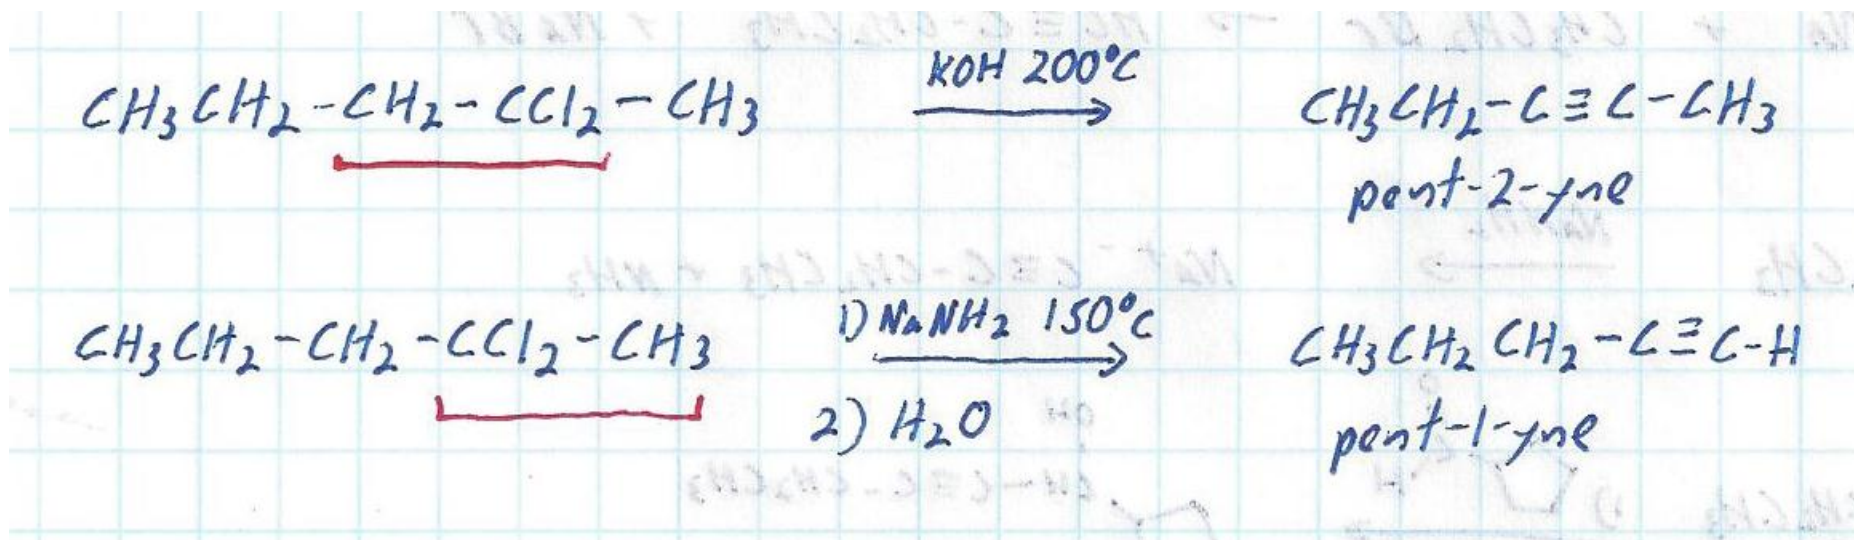 CH₃CH₂-CH₂-CCl₂-CH₃ KOH 200°C → CH₃CH₂-C≡C-CH₃
pent-2-yne
CH₃CH₂-CH₂-CCl₂-CH₃ 1) NaNH₂ 150°C → CH₃CH₂CH₂-C≡C-H
2) H₂O pent-1-yne